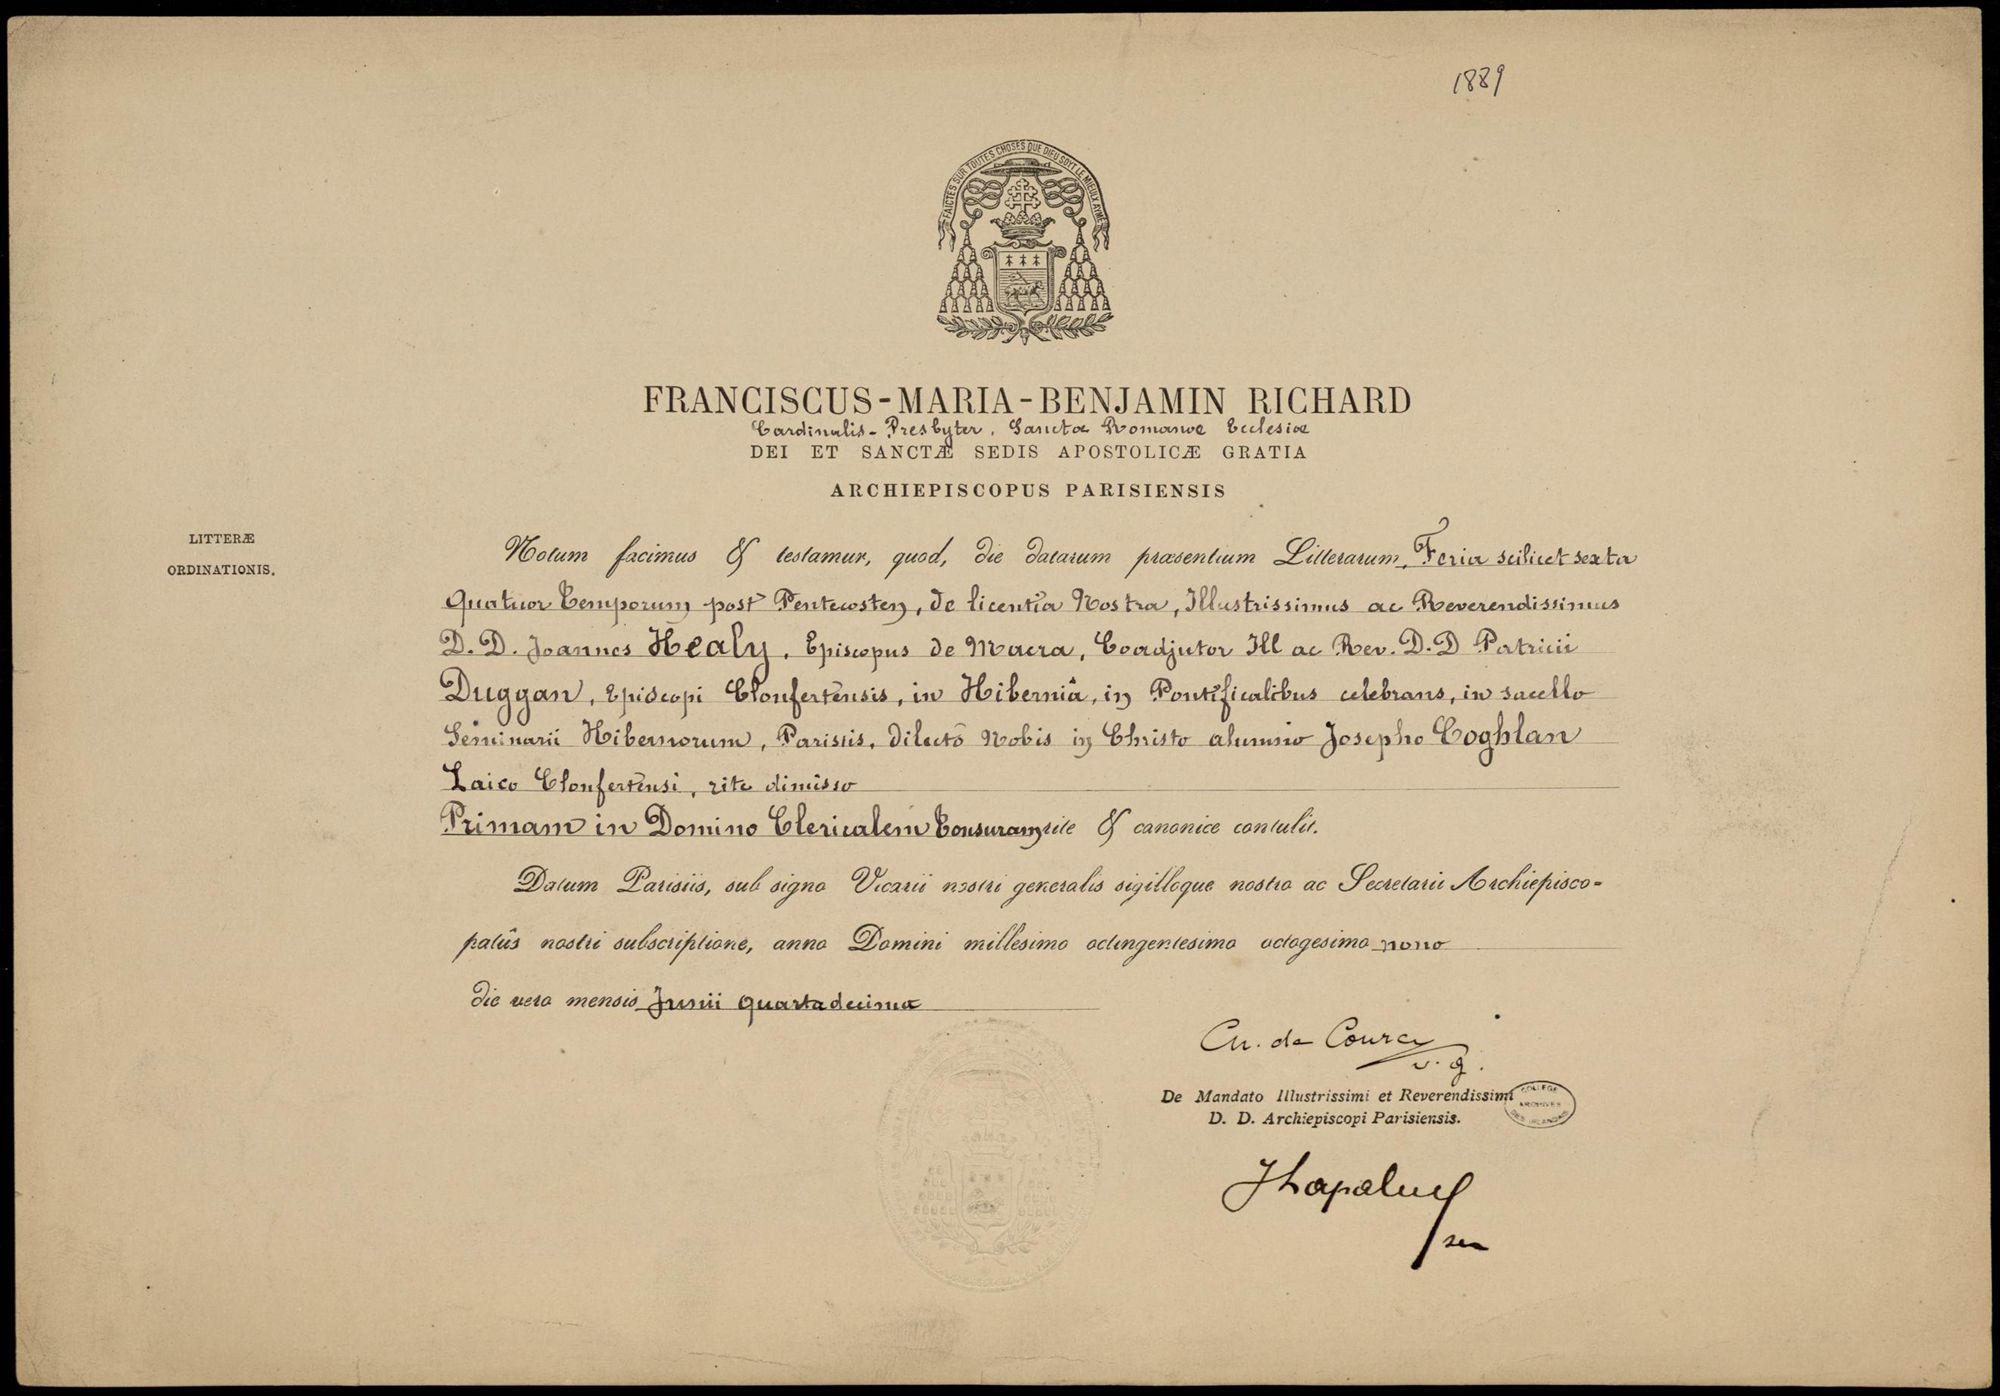 1889
FAICTES SUR TOUTES CHOSES QUE DIEU SOYT LE MIEULX AYMÉ
FRANCISCUS-MARIA-BENJAMIN RICHARD
Cardinalis-Presbyter, Sanctæ Romanæ Ecclesiæ
DEI ET SANCTÆ SEDIS APOSTOLICÆ GRATIA
ARCHIEPISCOPUS PARISIENSIS
LITTERÆ
ORDINATIONIS.
Notum facimus & testamur, quod, die datarum præsentium Litterarum, Feria scilicet sexta
Quatuor Temporum post Pentecosten, de licentia Nostra, Illustrissimus ac Reverendissimus
D. D. Joannes Healy, Episcopus de Macra, Coadjutor Ill ac Rev. D. D Patricii
Duggan, Episcopi Clonfertensis, in Hiberniâ, in Pontificalibus celebrans, in sacello
Seminarii Hibernorum, Parisiis, dilecto Nobis in Christo alumno Josepho Coghlan
Laico Clonfertensi, rite dimisso
Primam in Domino Clericalem Tonsuram rite & canonice contulit.
Datum Parisiis, sub signo Vicarii nostri generalis sigilloque nostro ac Secretarii Archiepisco-
patûs nostri subscriptione, anno Domini millesimo octingentesimo octogesimo nono
die vero mensis Junii quarta decima
de Courcy
v. g.
De Mandato Illustrissimi et Reverendissimi
D. D. Archiepiscopi Parisiensis.
COLLEGE
ARCHIVES
DES IRLANDAIS